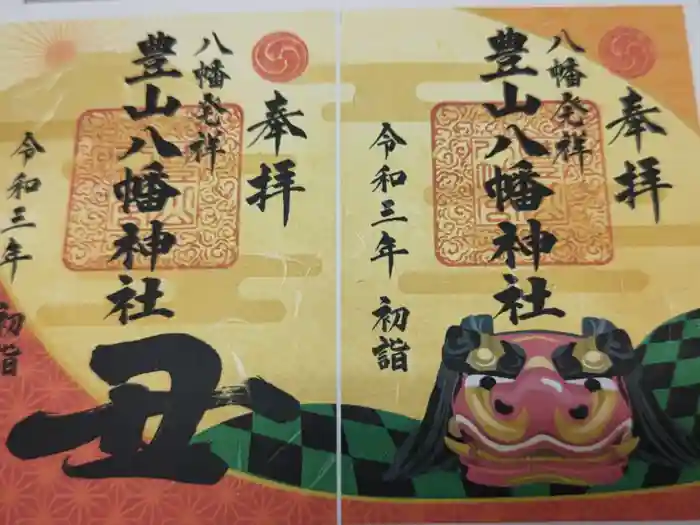 奉拝
八幡発祥
豊山八幡神社
令和三年 初詣
丑
奉拝
八幡発祥
豊山八幡神社
令和三年 初詣